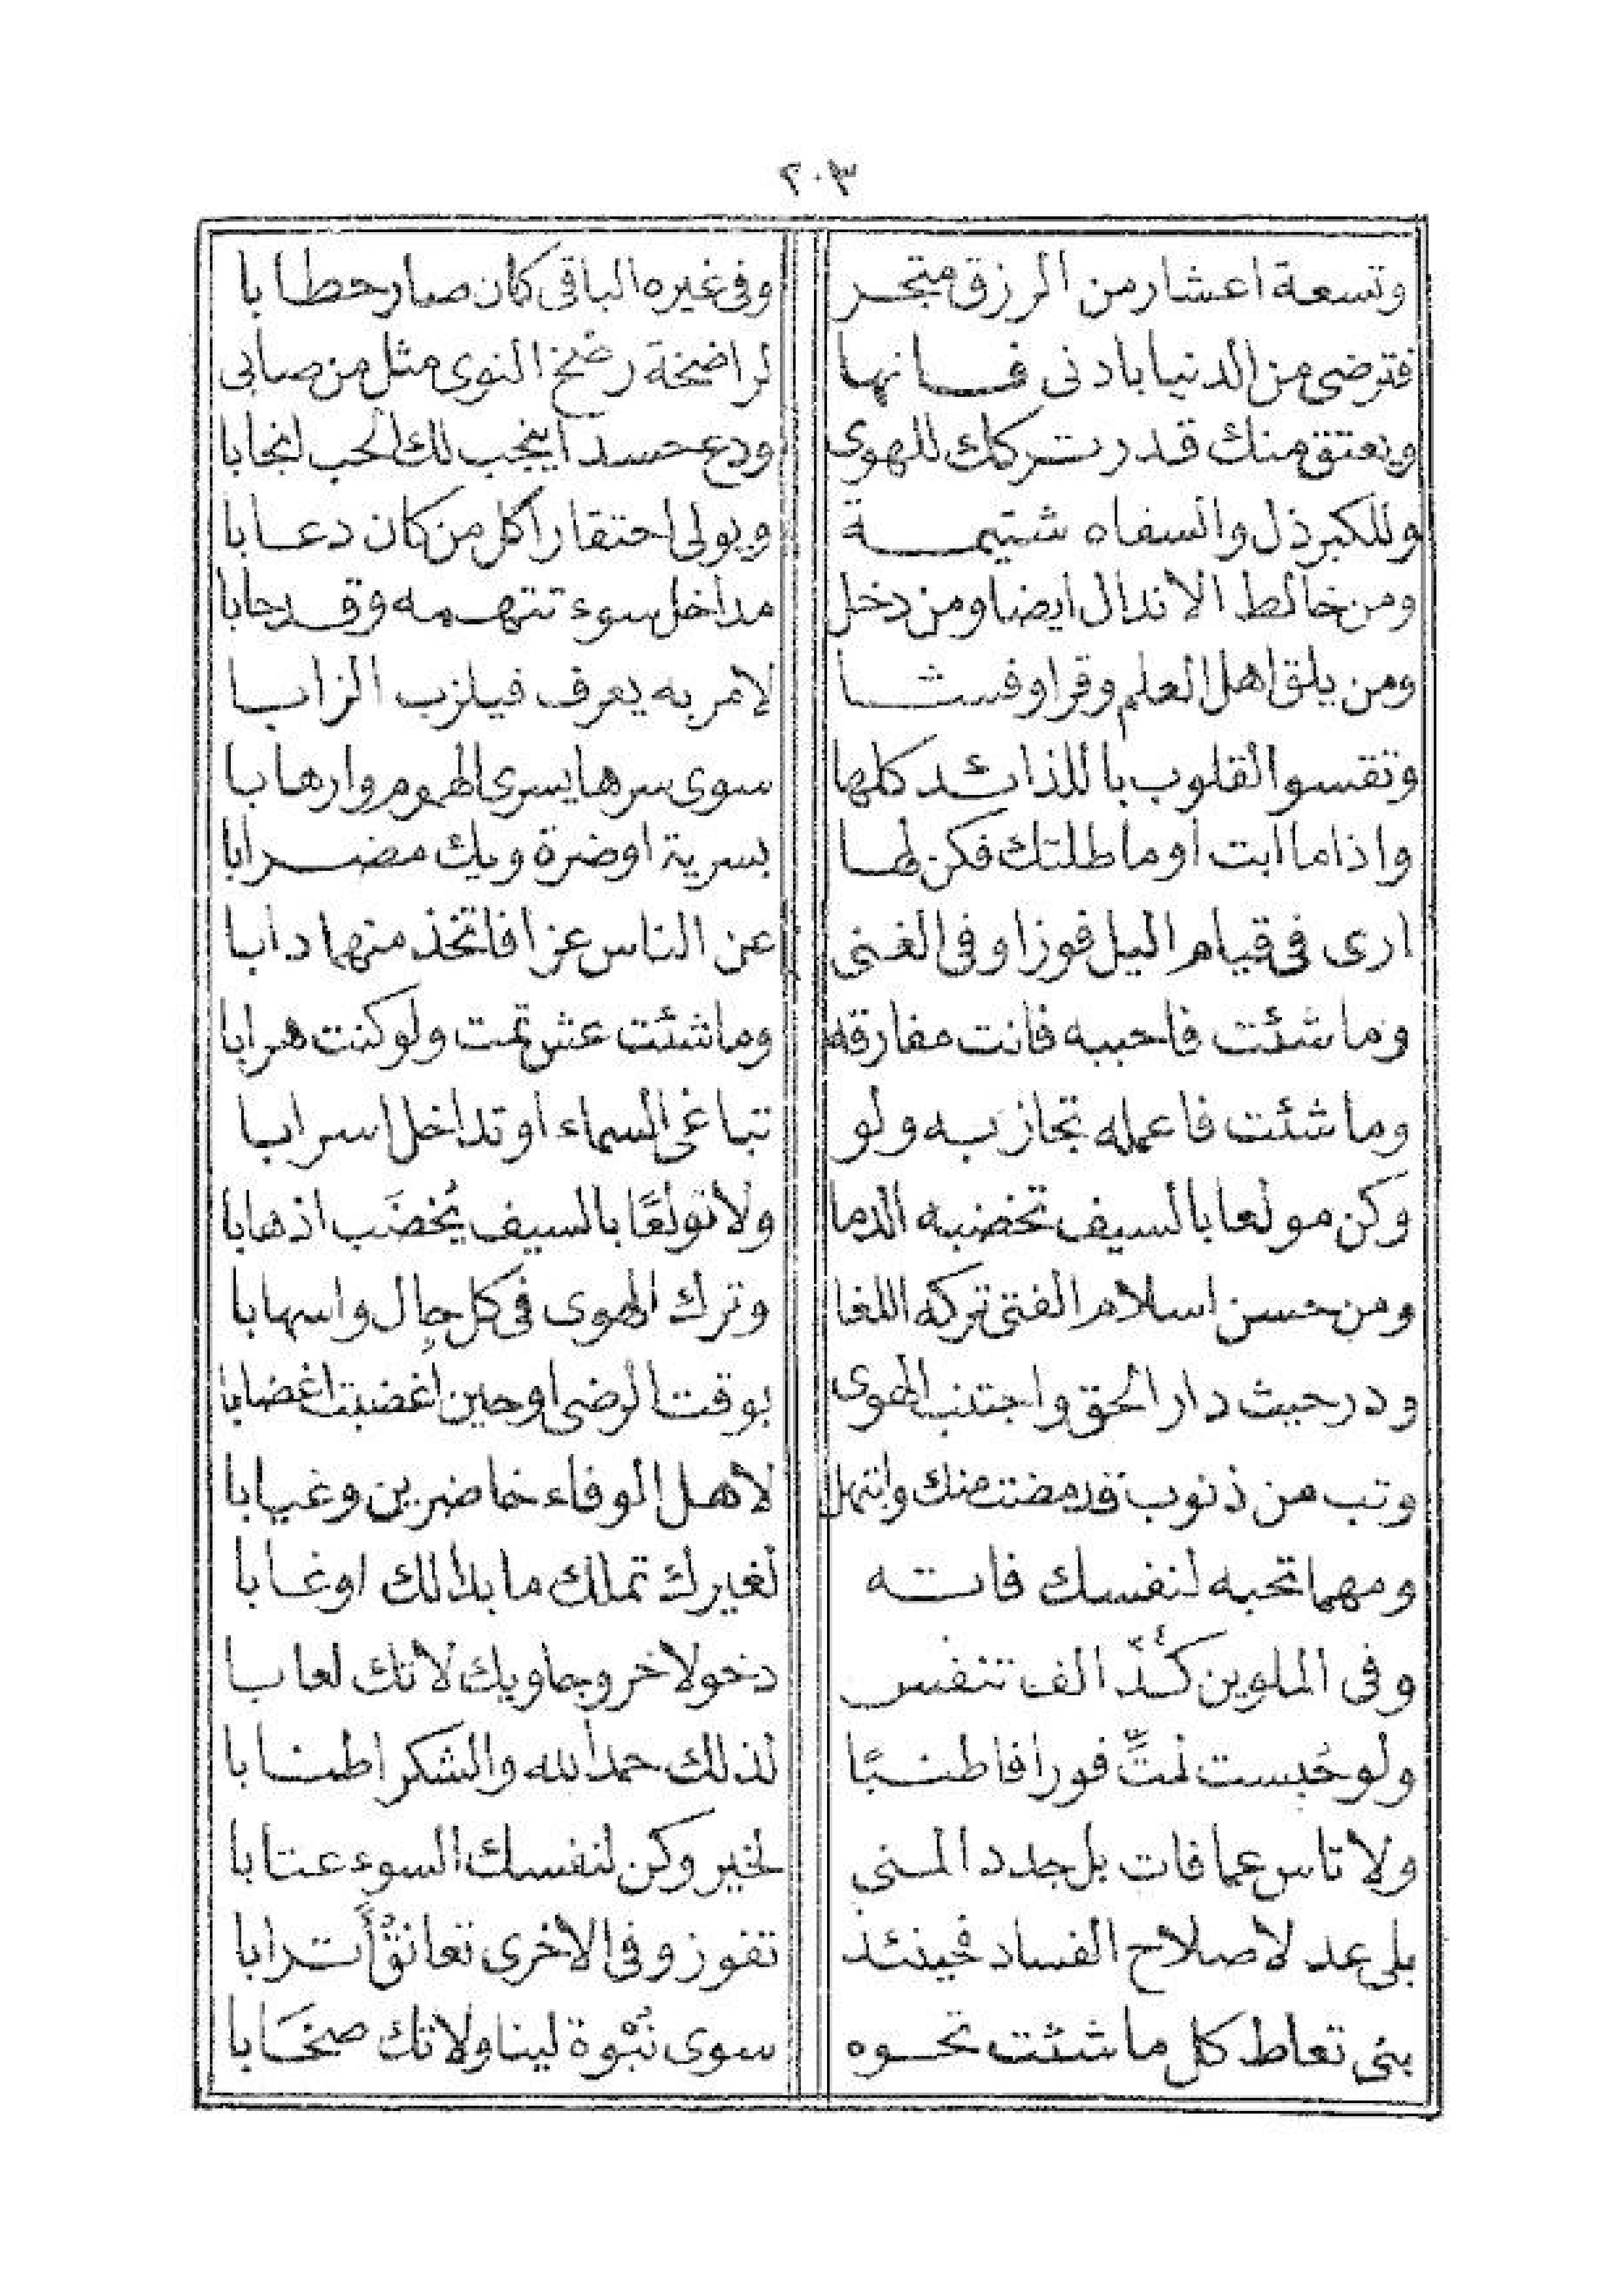 ٢٠٣
وتسعة اعشار من الرزق متجر وفى غيره الباقى كان صار حطابا
فترضى من الدنيا بادنى فانها لراضخة رضخ النوى مثل من صابى
ويعتق منك قدر تركك للهوى ودع حسدا ينجب لك الحب انجابا
وللكبر ذل والسفاه شتيمة ويولى احتقارا كل من كان دعابا
ومن خالط الاندال ايضا ومن دخل مداخل سوء تتهمه وقد حابا
ومن يلق اهل العلم وقرا وفشا لامر به يعرف فيلزب الزابا
وتقسو القلوب باللذائذ كلها سوى سرها يسرى الهموم وارهابا
واذا ما ابت او ماطلتك فكن لها بسرية اوضرة ويك مضرابا
ارى فى قيام اليل فوزا وفى الغنى عن الناس عزا فاتخذ منهما دابا
وما شئت فاحببه فانت مفارقه وما شئت عش تمت ولو كنت هرابا
وما شئت فاعمله تجاز به ولو تباغى السماء او تداخل اسرابا
وكن مولعا بالسيف تخضبه الدما ولا تولعًا بالسيف يُخضَب اذهابا
ومن حسن اسلام الفتى تركه اللغا وترك الهوى فى كل حال واسهابا
ودر حيث دار الحق واجتنب الهوى بوقت الرضى او حين اغضبت اغضابا
وتب من ذنوب قد مضت منك وابتهل لاهل الوفاء خاضرين وغيابا
ومهما تحبه لنفسك فاته لغيرك تملك ما بدا لك اوغابا
وفى الملوين كدّ الف تنفس دخولا خروجا ويك لا تك لعابا
ولو حُبست لمتِّ فورا فاطنبًا لذلك حمدا لله والشكر اطنابا
ولا تاس عما فات بل جدد المنى لخير وكن لنفسك السوء عتابا
بلى عد لاصلاح الفساد فحينئذ تفوز وفى الاخرى تعانق أترابا
بنى تعاط كل ما شئت نحوه سوى نبْوة لينا ولا تك صخَابا